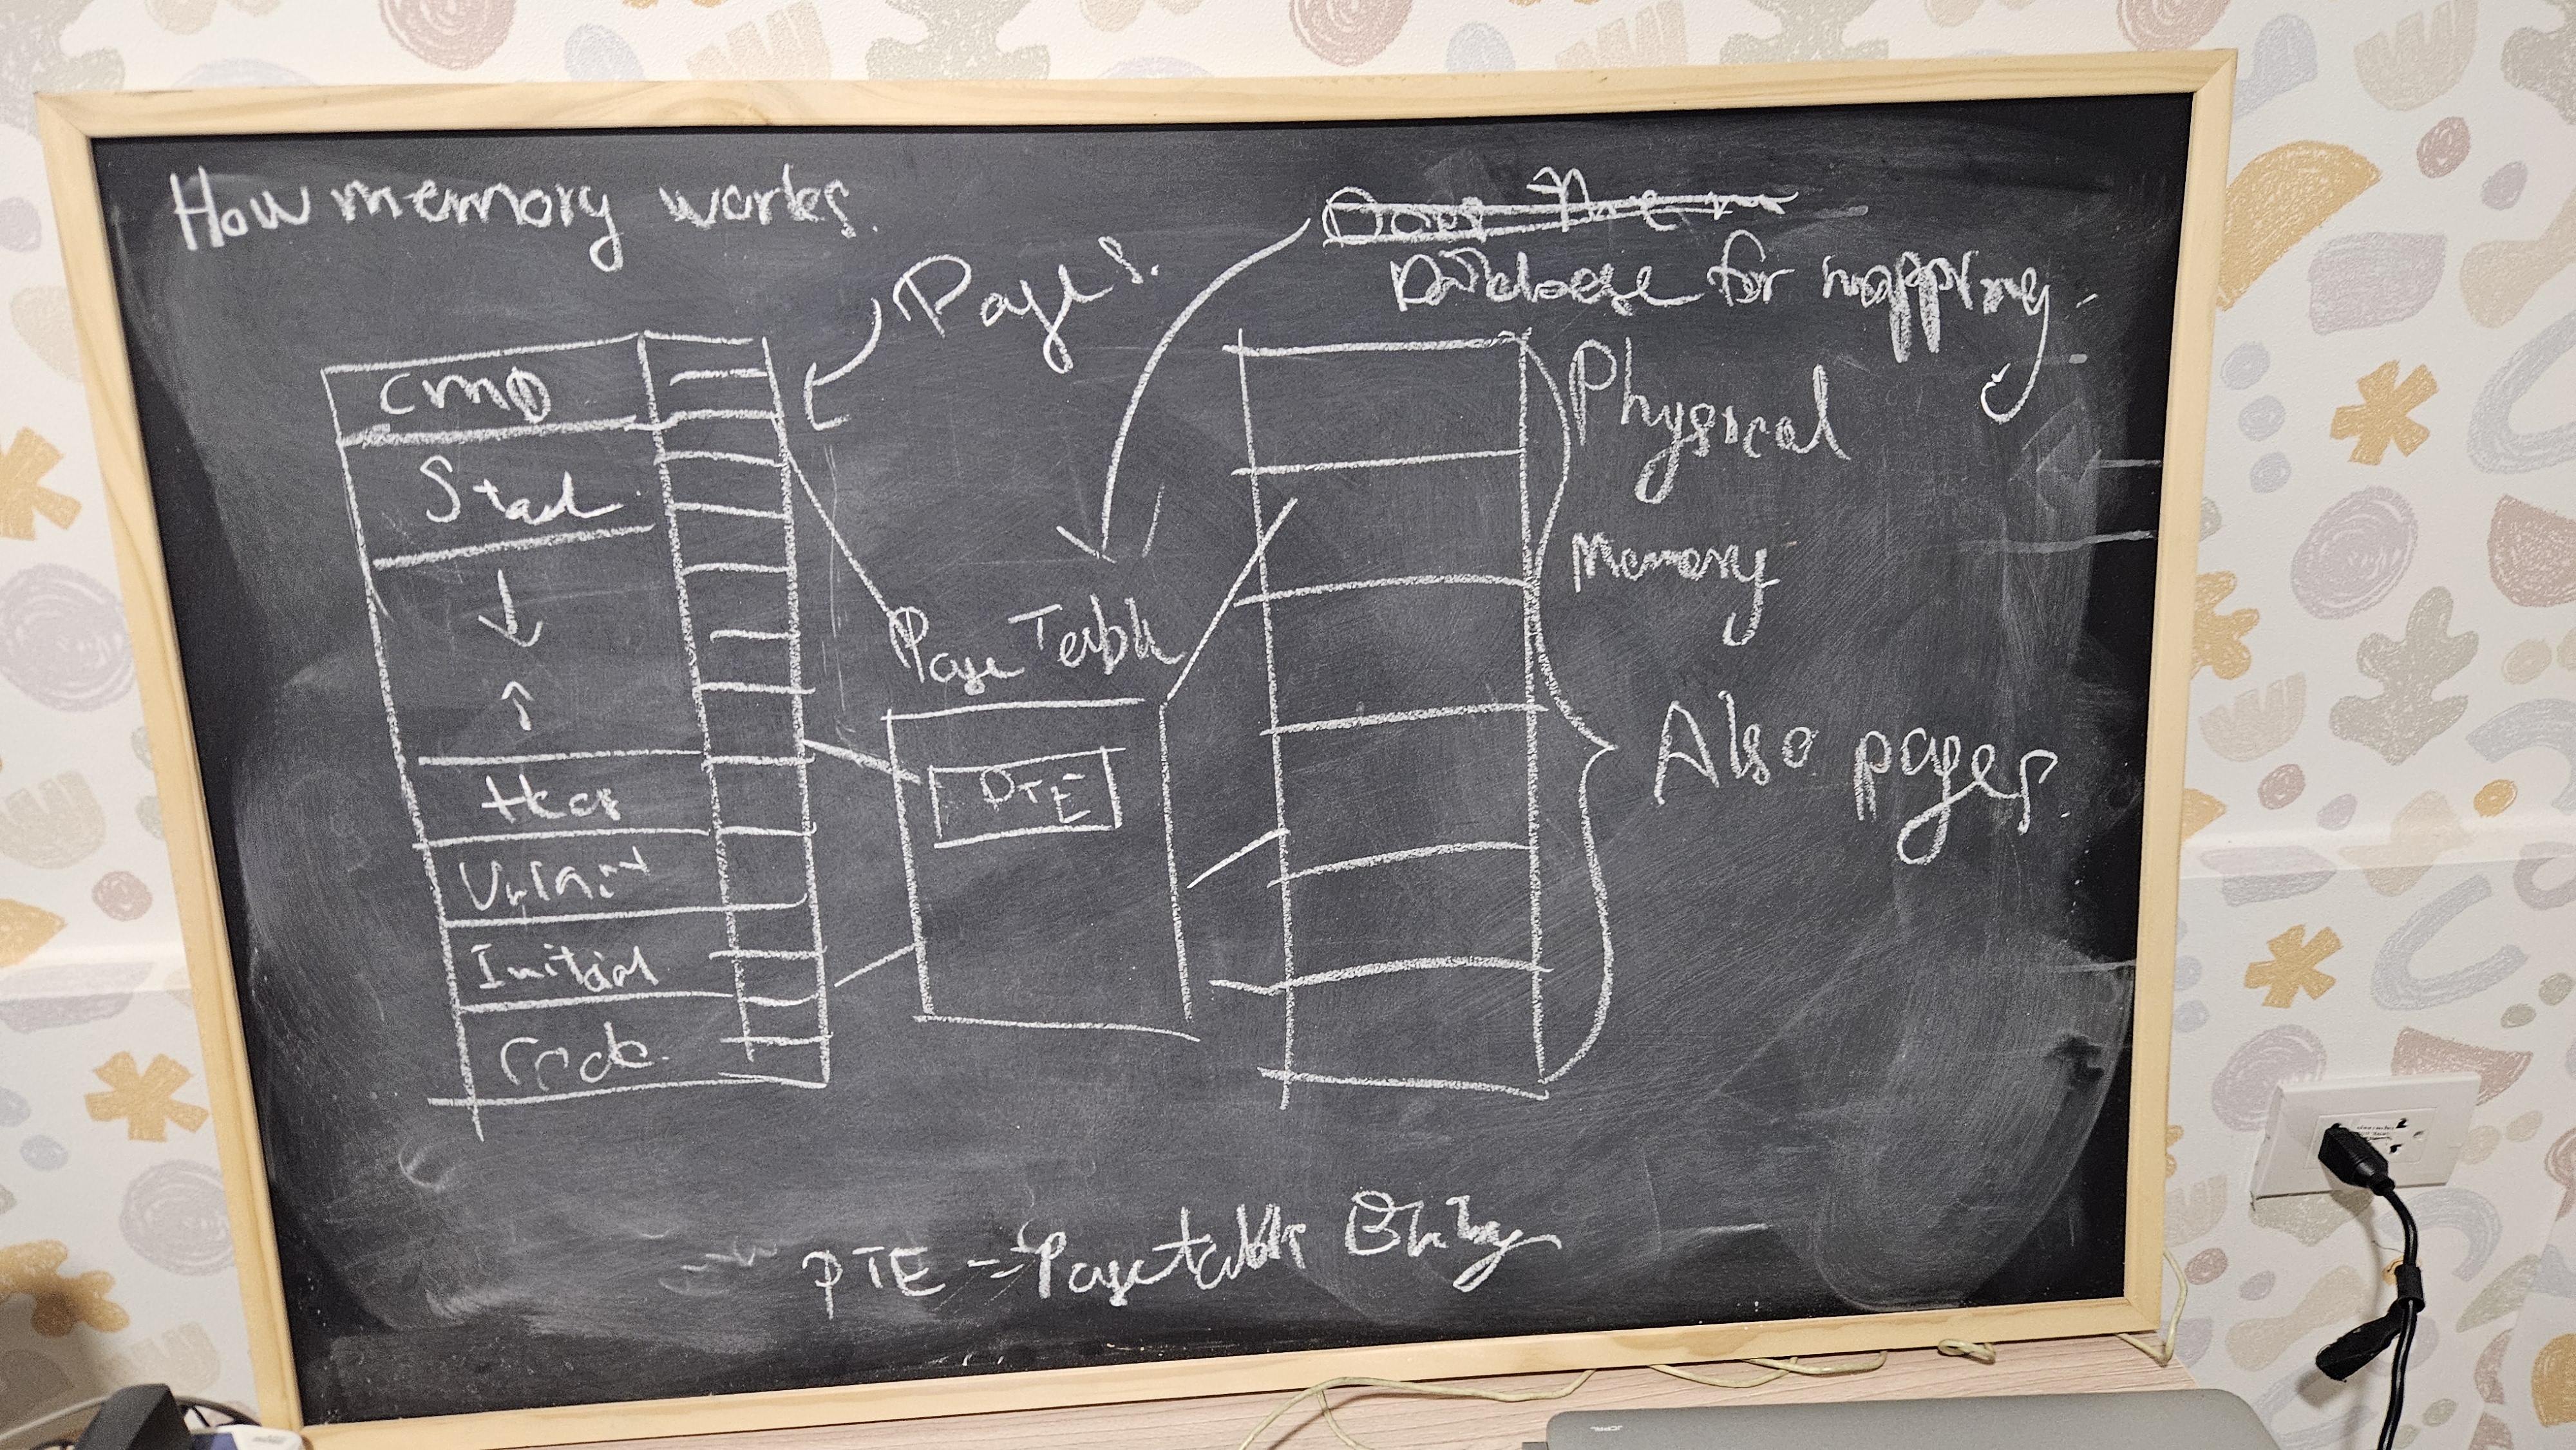 How memory works.
Pages.
Database for mapping
CMD
Stack
Heap
Uninit
Initial
Code
Page Table
PTE
Physical
Memory
Also pages.
PTE - Page table Entry